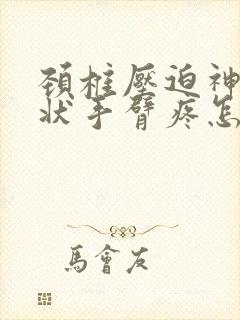 頚椎壓迫神
狀手臂疼怎
馬會友